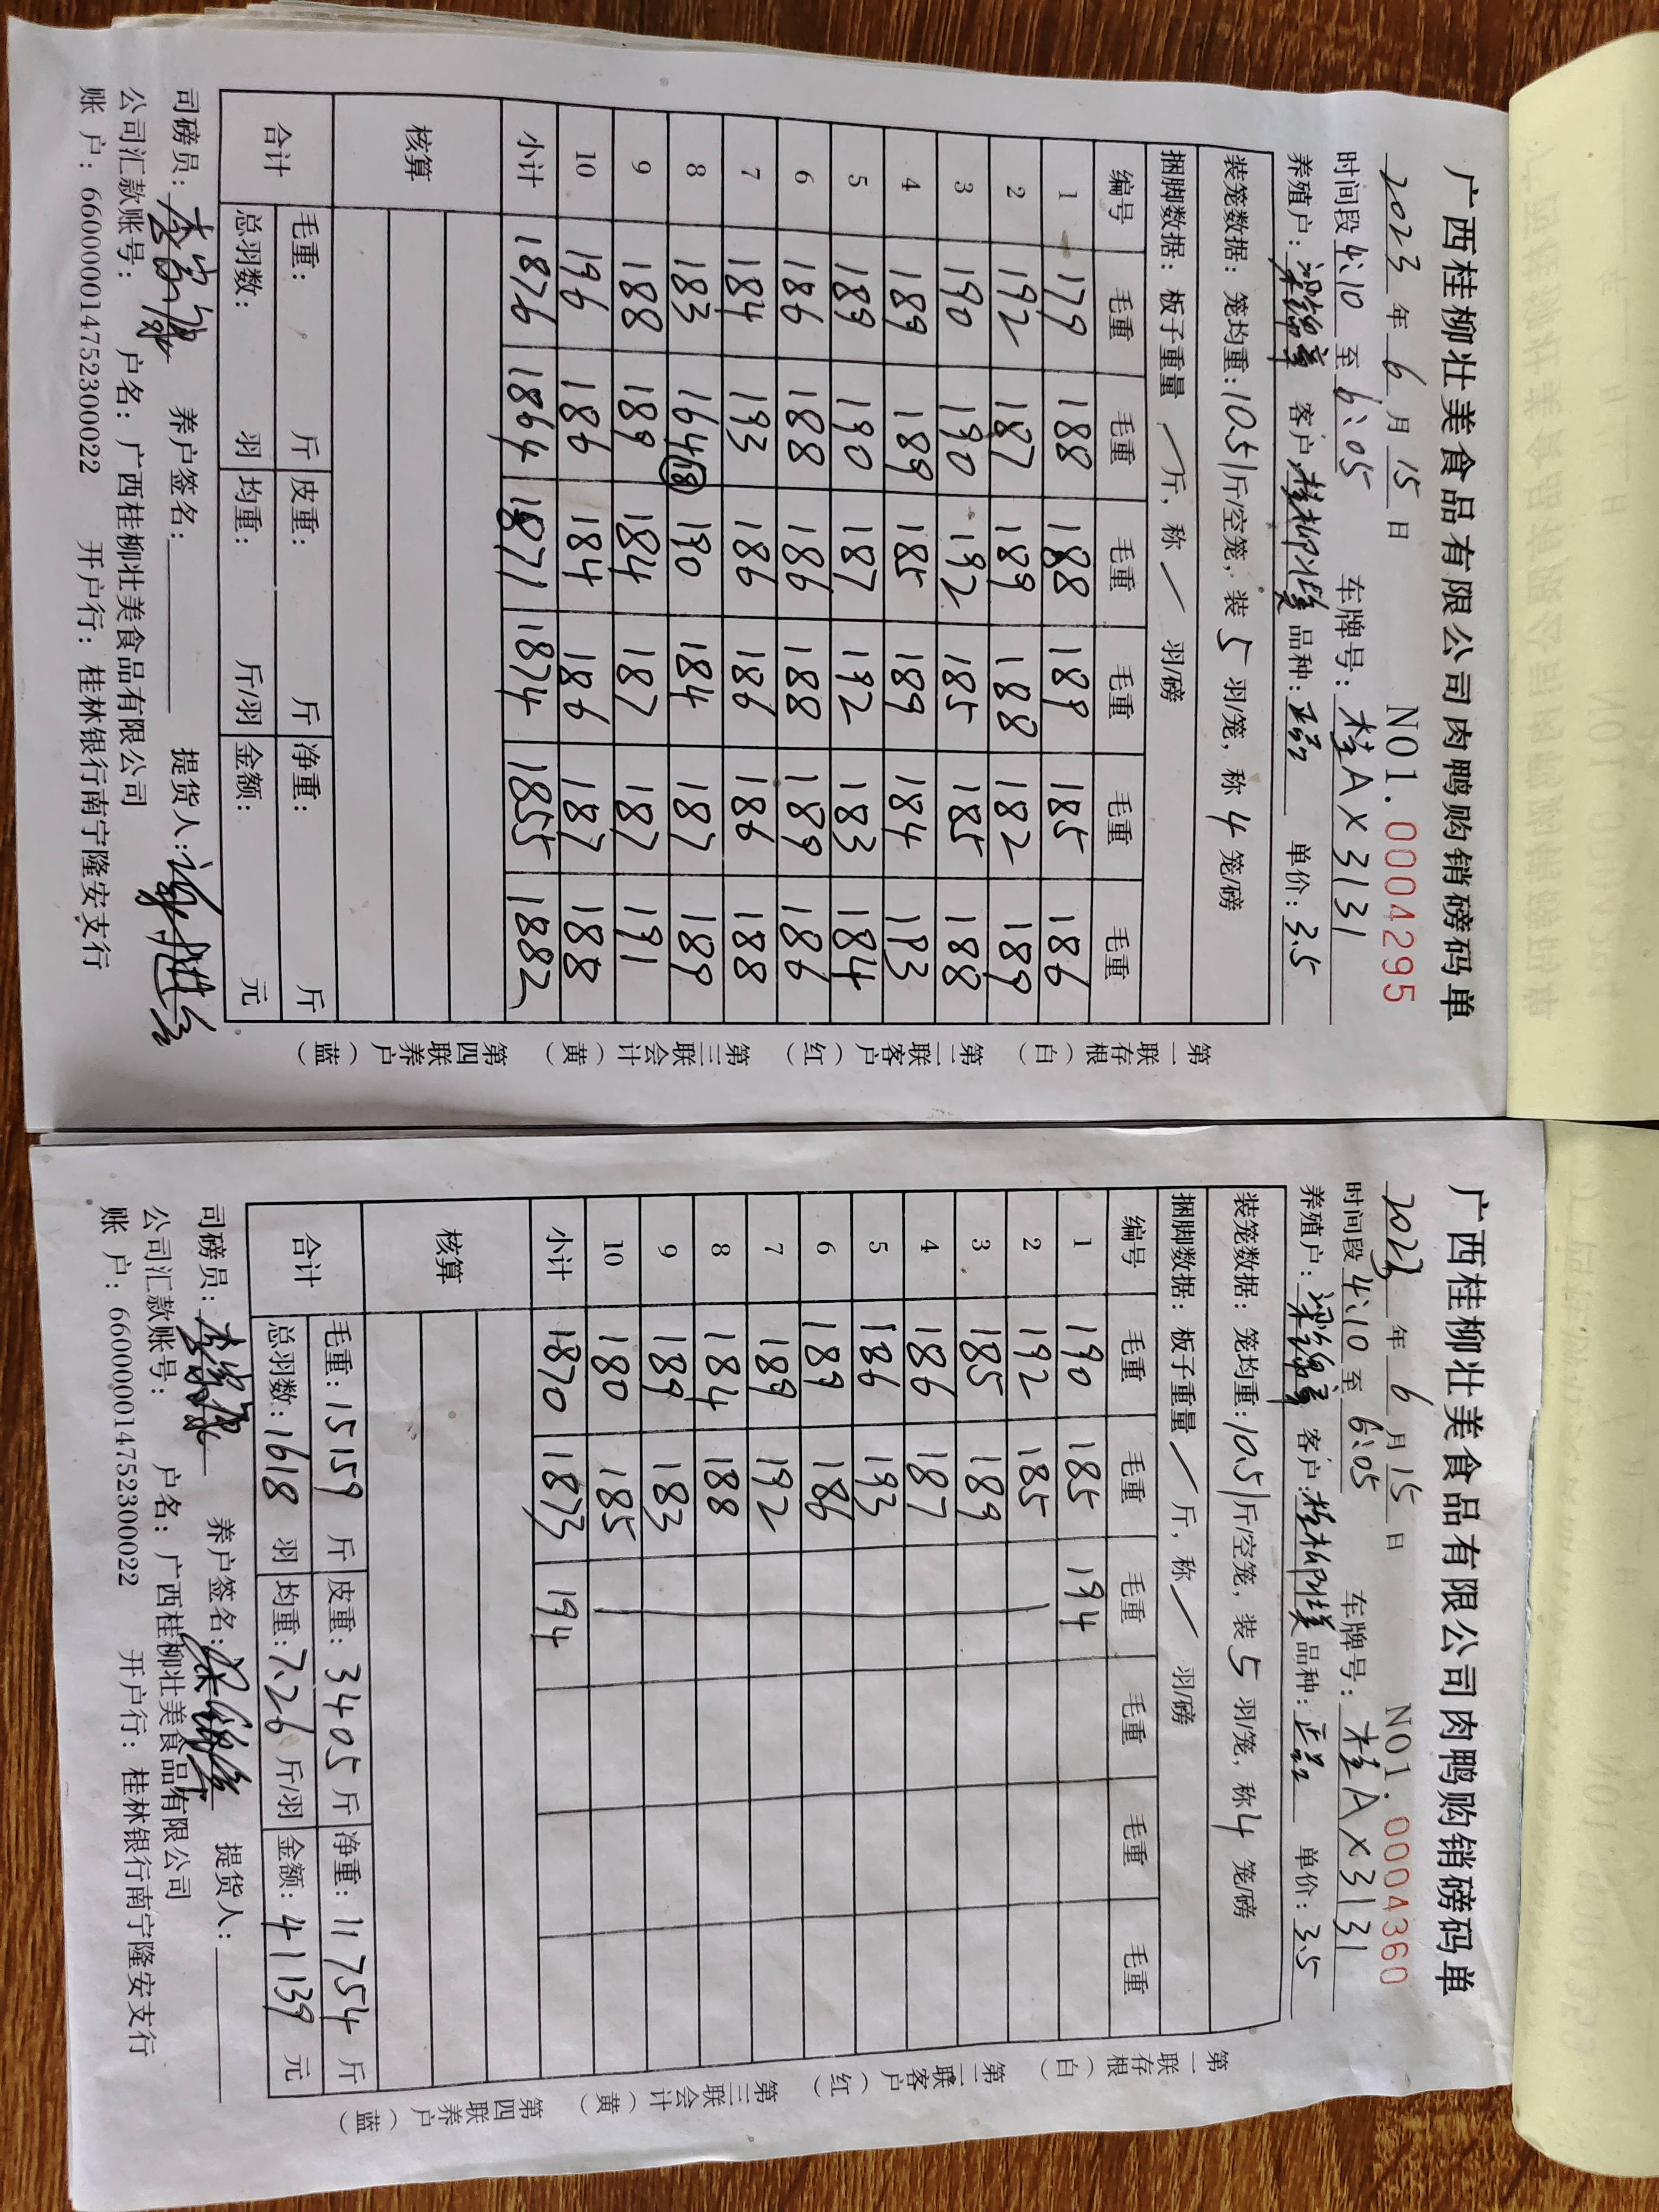 广西桂柳壮美食品有限公司肉鸭购销磅码单
NO1.0004295
2023年6月15日 车牌号：桂AX3131
时间段4:10至6:05
养殖户： 客户:桂柳壮美 品种：正品 单价：3.5
装笼数据：笼均重：10.51斤/空笼，装5羽/笼，称4笼/磅
捆脚数据：板子重量／斤，称／羽/磅
编号 毛重 毛重 毛重 毛重 毛重 毛重
1 179 188 188 189 185 186
2 192 187 189 188 182 189
3 190 190 192 185 185 188
4 189 189 185 189 184 193
5 189 190 187 192 183 184
6 186 188 186 188 189 186
7 184 193 186 186 186 188
8 183 164⑱ 190 184 187 189
9 188 189 184 187 187 191
10 196 186 184 186 187 188
小计 1876 1864 1871 1874 1855 1882
核算
合计 毛重： 斤 皮重： 斤 净重： 斤
总羽数： 羽 均重： 斤/羽 金额： 元
司磅员： 养户签名： 提货人：
公司汇款账号： 户名：广西桂柳壮美食品有限公司
账户：660000014752300022 开户行：桂林银行南宁隆安支行
第一联存根（白） 第二联客户（红） 第三联会计（黄） 第四联养户（蓝）
广西桂柳壮美食品有限公司肉鸭购销磅码单
NO1.0004360
2023年6月15日 车牌号：桂AX3131
时间段4:10至6:05
养殖户： 客户:桂柳壮美 品种：正品 单价：3.5
装笼数据：笼均重：10.51斤/空笼，装5羽/笼，称4笼/磅
捆脚数据：板子重量／斤，称／羽/磅
编号 毛重 毛重 毛重 毛重 毛重 毛重
1 190 185 194
2 192 185
3 185 189
4 186 187
5 186 193
6 189 186
7 189 192
8 184 188
9 189 183
10 180 185
小计 1870 1873 194
核算
合计 毛重：15159斤 皮重：3405斤 净重：11754斤
总羽数：1618羽 均重：7.26斤/羽 金额：41139元
司磅员： 养户签名： 提货人：
公司汇款账号： 户名：广西桂柳壮美食品有限公司
账户：660000014752300022 开户行：桂林银行南宁隆安支行
第一联存根（白） 第二联客户（红） 第三联会计（黄） 第四联养户（蓝）